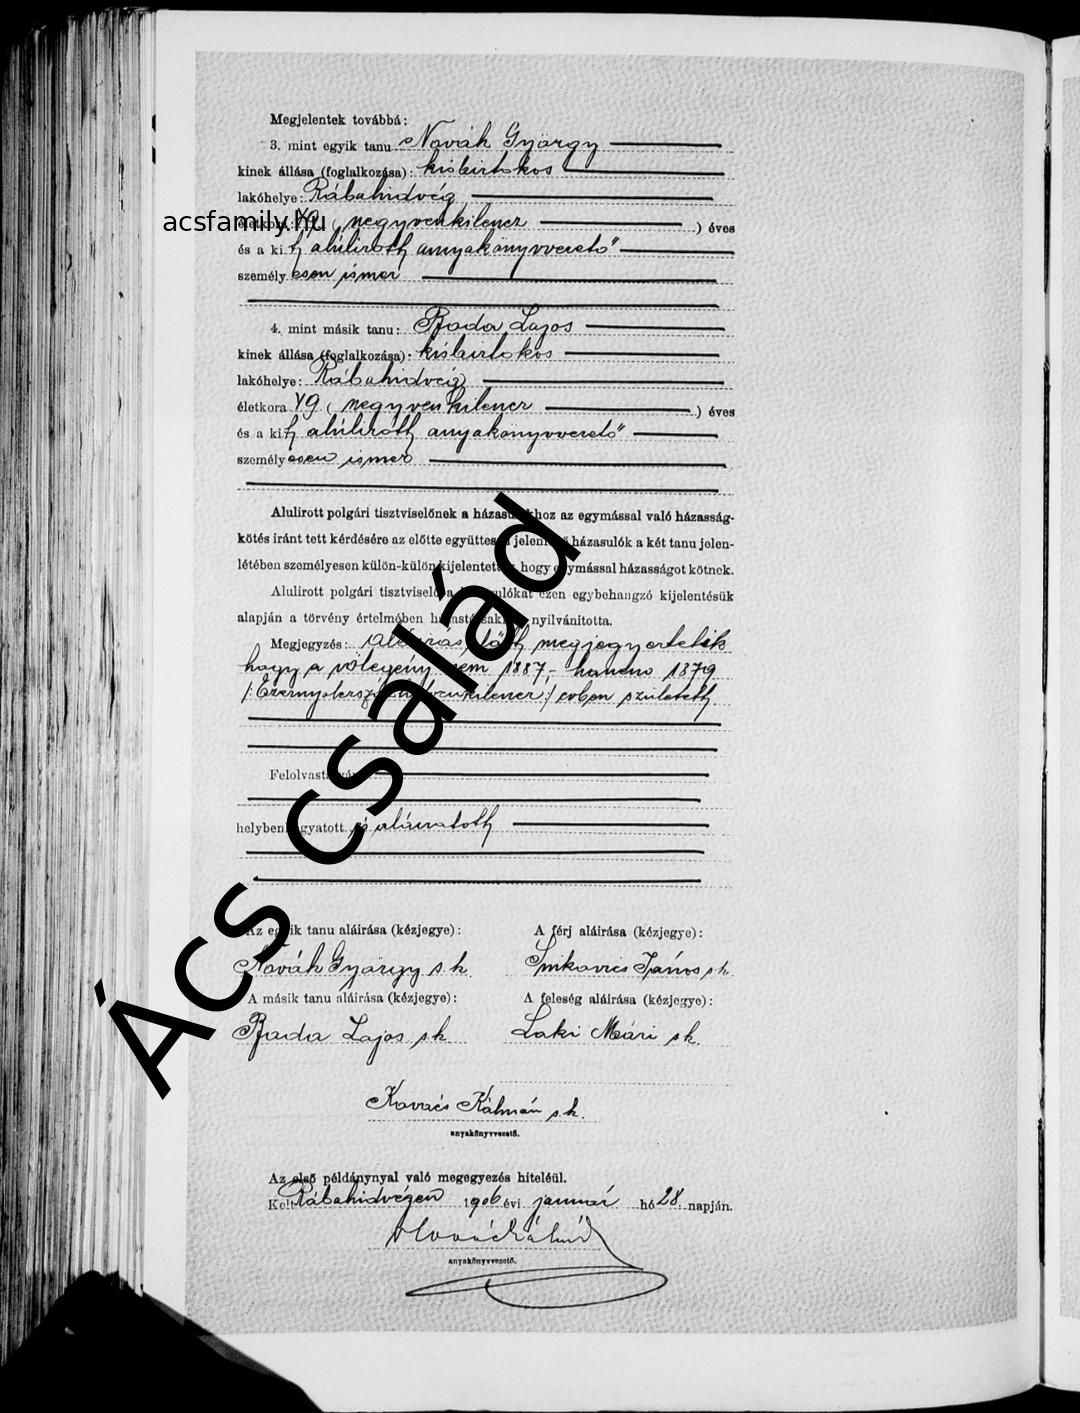 Megjelentek továbbá:
3. mint egyik tanu Novák György
kinek állása (foglalkozása): kisbirtokos
lakóhelye: Rábahidvég
acsfamily.hu
életkora 49 (negyvenkilencz) éves
és a kit alúlirott anyakönyvvezető
személyesen ismer
4. mint másik tanu: Bada Lajos
kinek állása (foglalkozása): kisbirtokos
lakóhelye: Rábahidvég
életkora 49 (negyvenkilencz) éves
és a kit alúlirott anyakönyvvezető
személyesen ismer
Alulirott polgári tisztviselőnek a házasulókhoz az egymással való házasság-
kötés iránt tett kérdésére az előtte együttesen jelenlevő házasulók a két tanu jelen-
létében személyesen külön-külön kijelentették, hogy egymással házasságot kötnek.
Alulirott polgári tisztviselő a házasulókat ezen egybehangzó kijelentésük
alapján a törvény értelmében házastársaknak nyilvánította.
Megjegyzés: Aláirás előtt megjegyeztetik
hogy a vőlegény nem 1887, hanem 1879
/: Ezernyolczszázhetvenkilencz :/ évben született
Felolvastatván
helybenhagyatott és aláiratott
Ács család
Az egyik tanu aláirása (kézjegye):
A férj aláirása (kézjegye):
Novák György s. k.
János s. k.
A másik tanu aláirása (kézjegye):
A feleség aláirása (kézjegye):
Bada Lajos s. k.
Laki Mári s. k.
Kovács Kálmán s. k.
anyakönyvvezető.
Az első példánynyal való megegyezés hiteléül.
Kelt Rábahidvégen 1906 évi január hó 28. napján.
Kovács Kálmán
anyakönyvvezető.